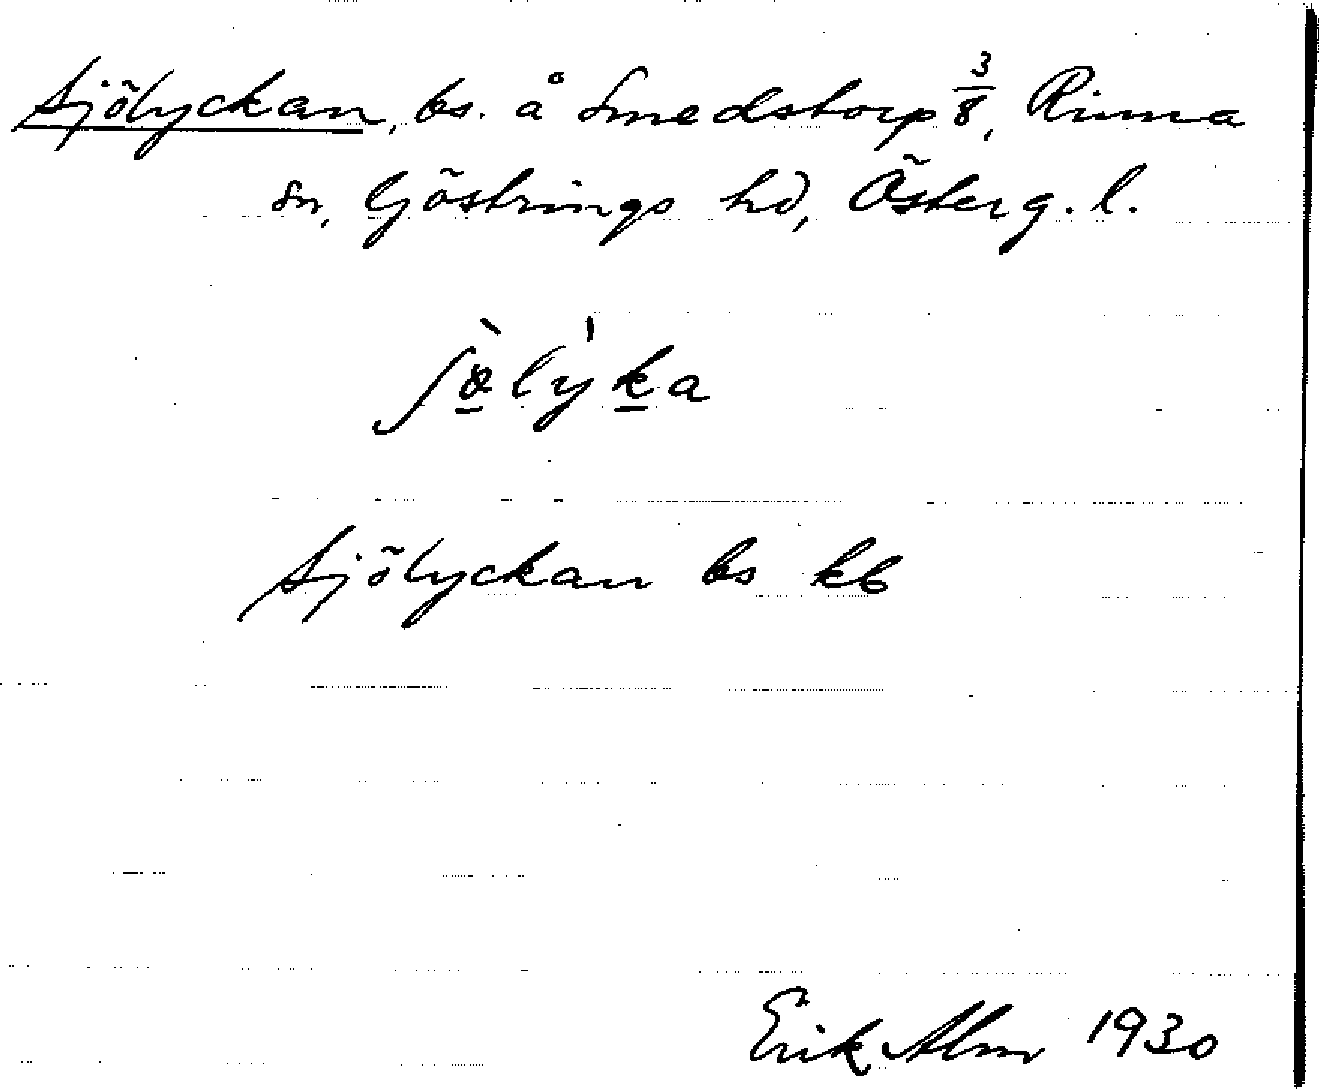 Sjölyckan, bs. å Smedstorp 3/8, Rinna
sn, Göstrings hd, Österg. l.
ʃø̱̀ly̍ḵa
Sjölyckan bs kb
Erik Alm 1930